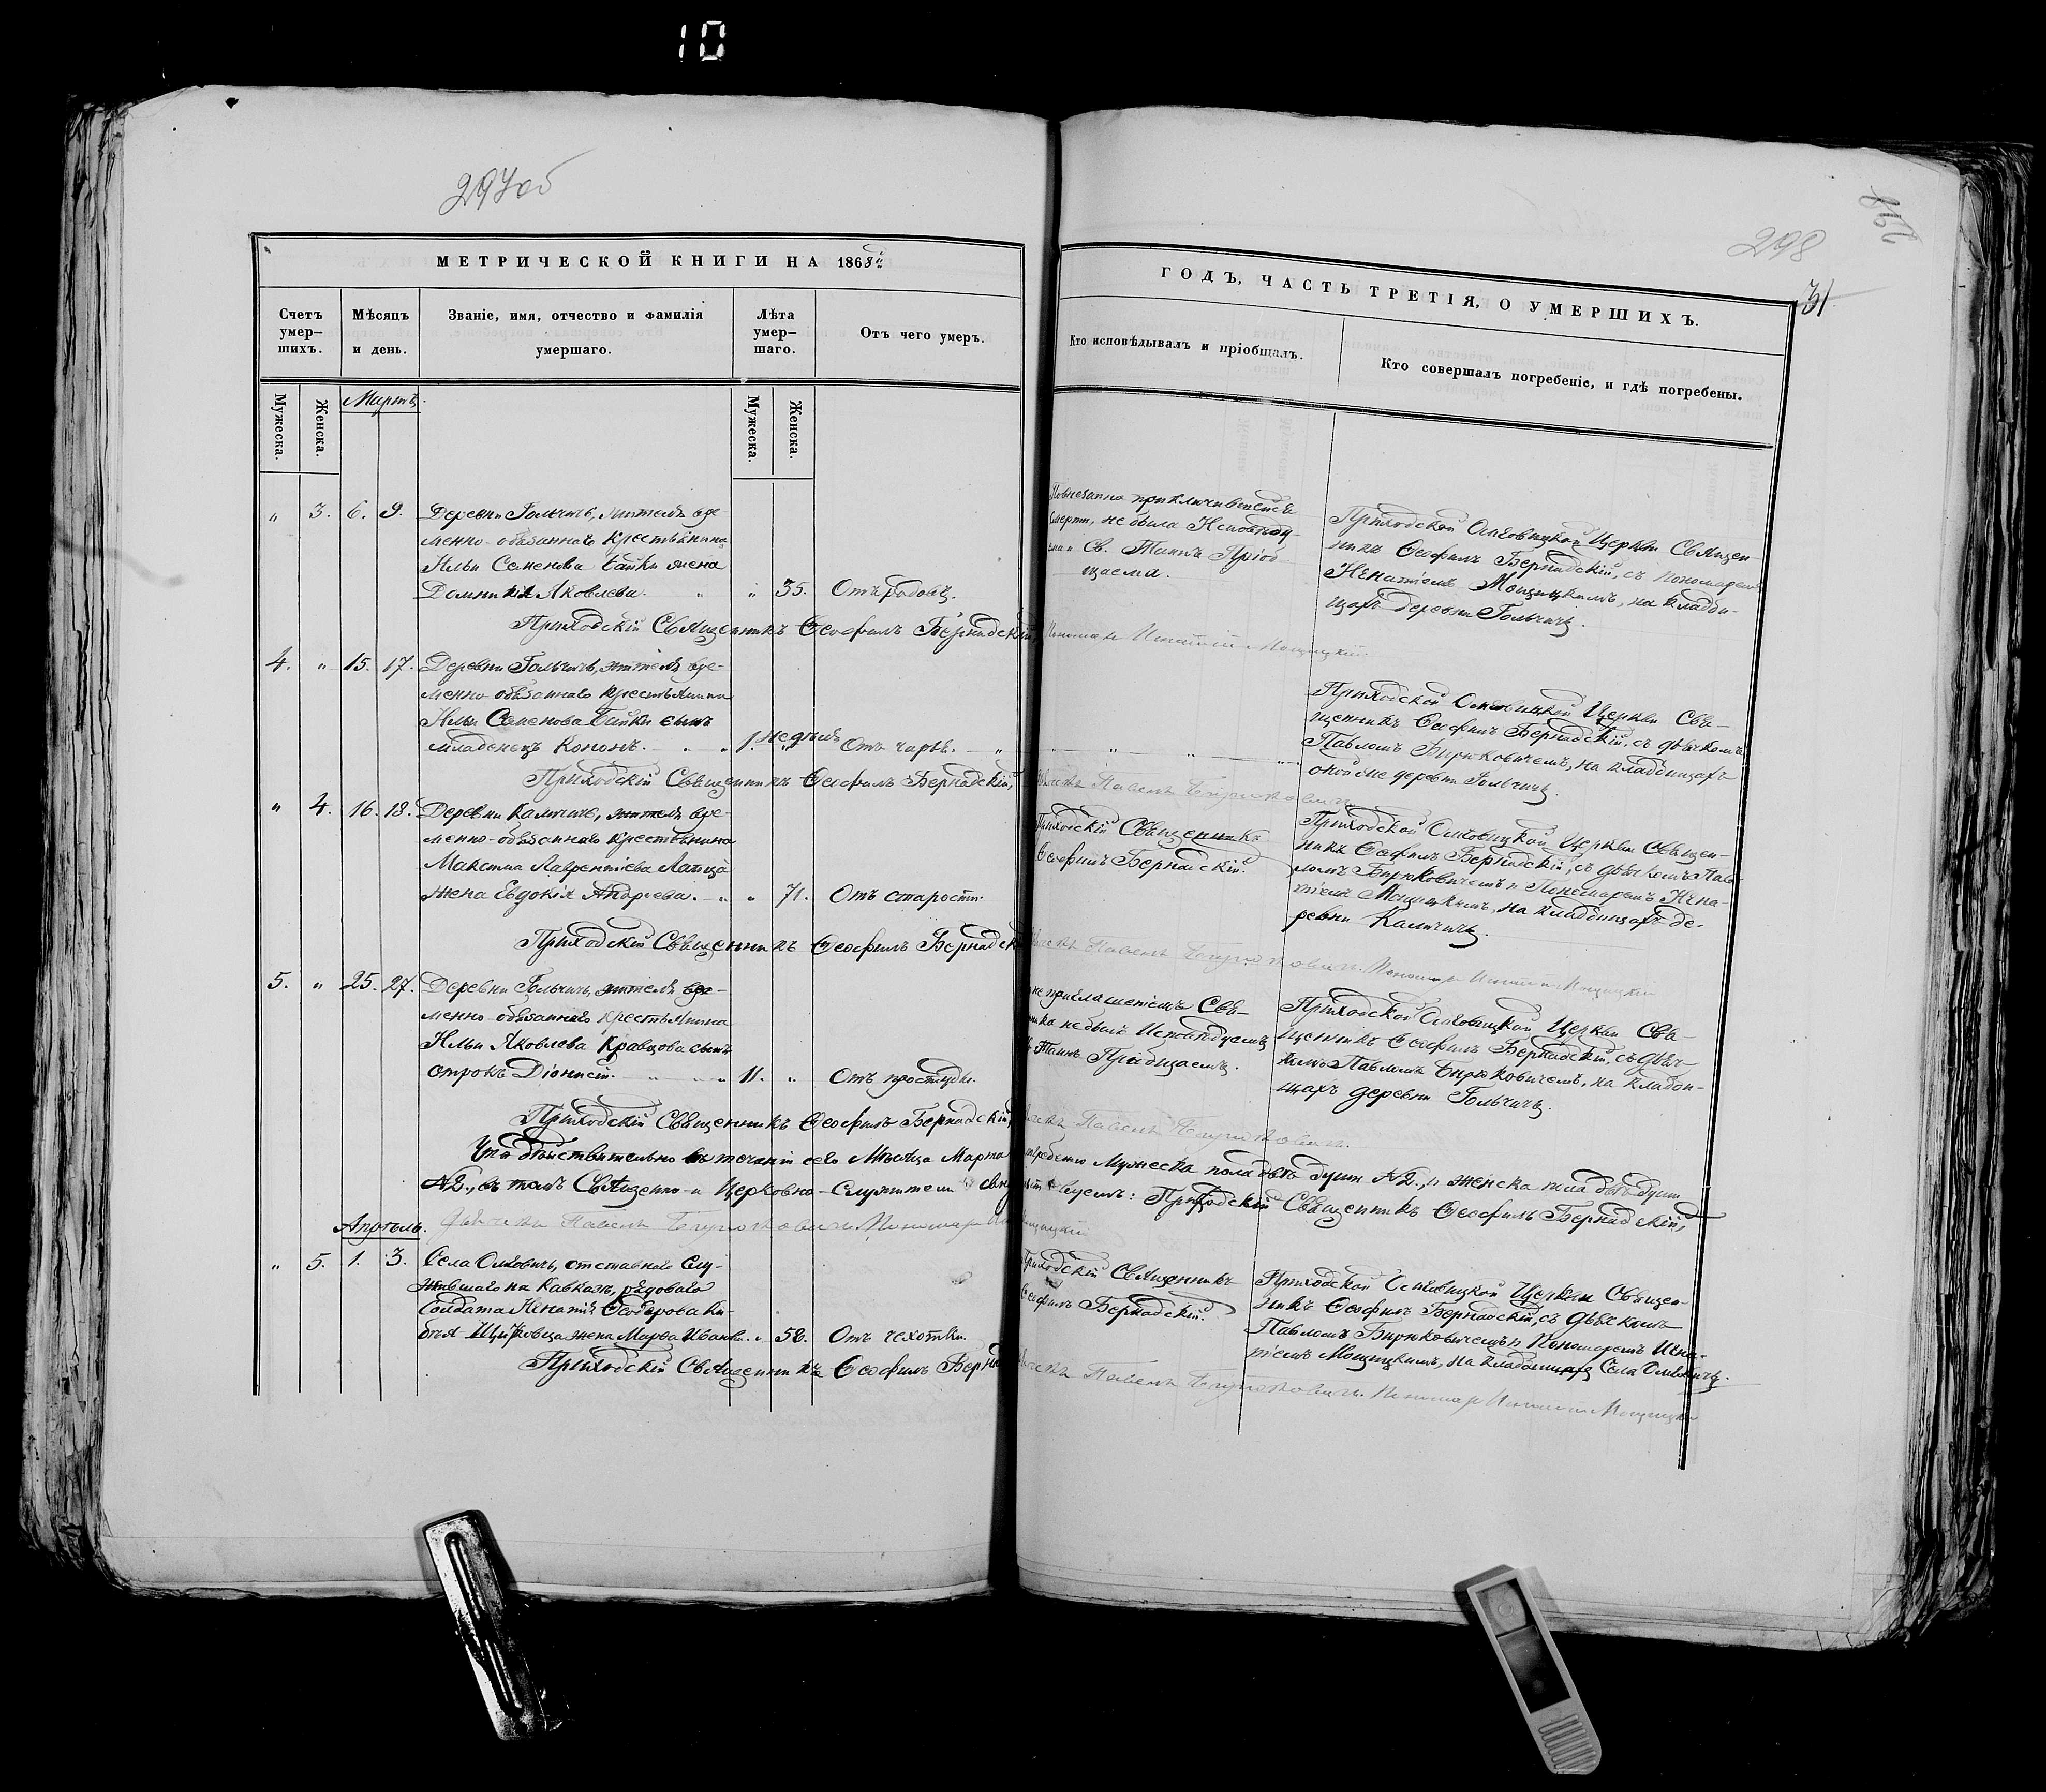 10
297об
298
298
31
МЕТРИЧЕСКОЙ КНИГИ НА 1868й
ГОДЪ, ЧАСТЬ ТРЕТІЯ, О УМЕРШИХЪ.
Счетъ умер-шихъ.
Мѣсяцъ и день.
Званіе, имя, отчество и фамилія умершаго.
Лѣта умер-шаго.
Отъ чего умеръ.
Кто исповѣдывалъ и пріобщалъ.
Кто совершалъ погребеніе, и гдѣ погребены.
Мужеска.
Женска.
Мартъ.
Мужеска.
Женска.
„ 3. 6. 9. Деревни Гольчичъ, жителя вре-
менно-обязаннаго Крестьянина
Ильи Семенова Байки жена
Домникія Яковлева. „ „ 35. Отъ родовъ.
смерти, не была Исповѣду-
ема и Св. Таинъ Пріоб-
щаема.
Приходской Церкви Священ-
никъ Ѳеофилъ Бернадскій, съ пономаремъ
Игнатіемъ Мощицкимъ, на кладби-
щахъ деревни Гольчичъ.
Приходскій Священникъ Ѳеофилъ Бернадскій,
Пономарь Игнатій Мощицкій.
4. „ 15. 17. Деревни Гольчичъ, жителя вре-
менно-обязаннаго Крестьянина
Ильи Семенова Байки сынъ
младенецъ Кононъ. „ „ 1. недѣля Отъ „
„ „ „ „
Приходской Церкви Свя-
щенникъ Ѳеофилъ Бернадскій, съ дьячкомъ
Павломъ Бирюковичемъ, на кладбищахъ
деревни Гольчичъ.
Приходскій Священникъ Ѳеофилъ Бернадскій,
Дьячекъ Павелъ Бирюковичъ.
„ 4. 16. 18. Деревни Калчичъ, жителя вре-
менно-обязаннаго крестьянина
Максима Лаврентіева
жена Евдокія Андреева. „ „ 71. Отъ старости.
Приходскій Священникъ
Ѳеофилъ Бернадскій.
Приходской Церкви Священ-
никъ Ѳеофилъ Бернадскій, съ дьячкомъ Пав-
ломъ Бирюковичемъ и Пономаремъ Игна-
тіемъ Мощицкимъ, на кладбищахъ де-
ревни Калчичъ.
Приходскій Священникъ Ѳеофилъ Бернадскій
Дьячекъ Павелъ Бирюковичъ. Пономарь Игнатій Мощицкій
5. „ 25. 27. Деревни Гольчичъ, жителя вре-
менно-обязаннаго Крестьянина
Ильи Яковлева Кравцова сынъ
отрокъ Діонисій. „ „ „ 11. „ Отъ простуды.
не приглашеніемъ Свя-
ника не былъ Исповѣдуемъ
Таинъ Пріобщаемъ.
Приходской Церкви Свя-
щенникъ Ѳеофилъ Бернадскій, съ дьяч-
комъ Павломъ Бирюковичемъ, на кладби-
щахъ деревни Гольчичъ.
Приходскій Священникъ Ѳеофилъ Бернадскій,
Дьячекъ Павелъ Бирюковичъ.
Что дѣйствительно въ теченіи сего Мѣсяца Марта погребено Мужеска пола двѣ души №2., и женска пола двѣ души
№2., въ томъ Священно- и Церковно-Служители свидѣтельствуемъ: Приходскій Священникъ Ѳеофилъ Бернадскій,
Дьячекъ Павелъ Бирюковичъ. Пономарь Мощицкій
Апрѣль.
„ 5. 1. 3. Села отставнаго Слу-
жившаго на Кавказѣ, рядоваго
Солдата Игнатія Ѳеодорова
жена Марѳа Иванова. „ 52. Отъ чехотки.
Приходскій Священникъ
Ѳеофилъ Бернадскій.
Приходской Церкви Священ-
никъ Ѳеофилъ Бернадскій, съ дьячкомъ
Павломъ Бирюковичемъ и Пономаремъ Игна-
тіемъ Мощицкимъ, на кладбищахъ Села
Приходскій Священникъ Ѳеофилъ Бернад
Дьячекъ Павелъ Бирюковичъ. Пономарь Игнатій Мощицкій